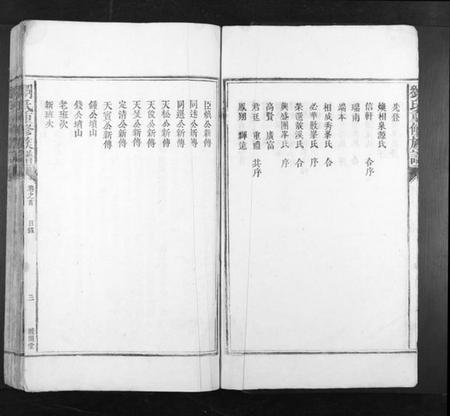 先登
煥相泉源氏
信軒 合序
瑞南
瑞本
相成秀峯氏 合
必華敬峯氏 序
榮選 氏 合
興盛團峯氏 序
高賢 廣富
君廷 重禮 其序
鳳翔 輝遠
劉氏重修族譜
公新傳
同述公新傳
同選公新傳
天松公新傳
天俊公新傳
天星公新傳
定清公新傳
天官公新傳
鍾公墳山
錢公墳山
老班次
新班次
劉氏重修族譜
卷之首 目錄 三